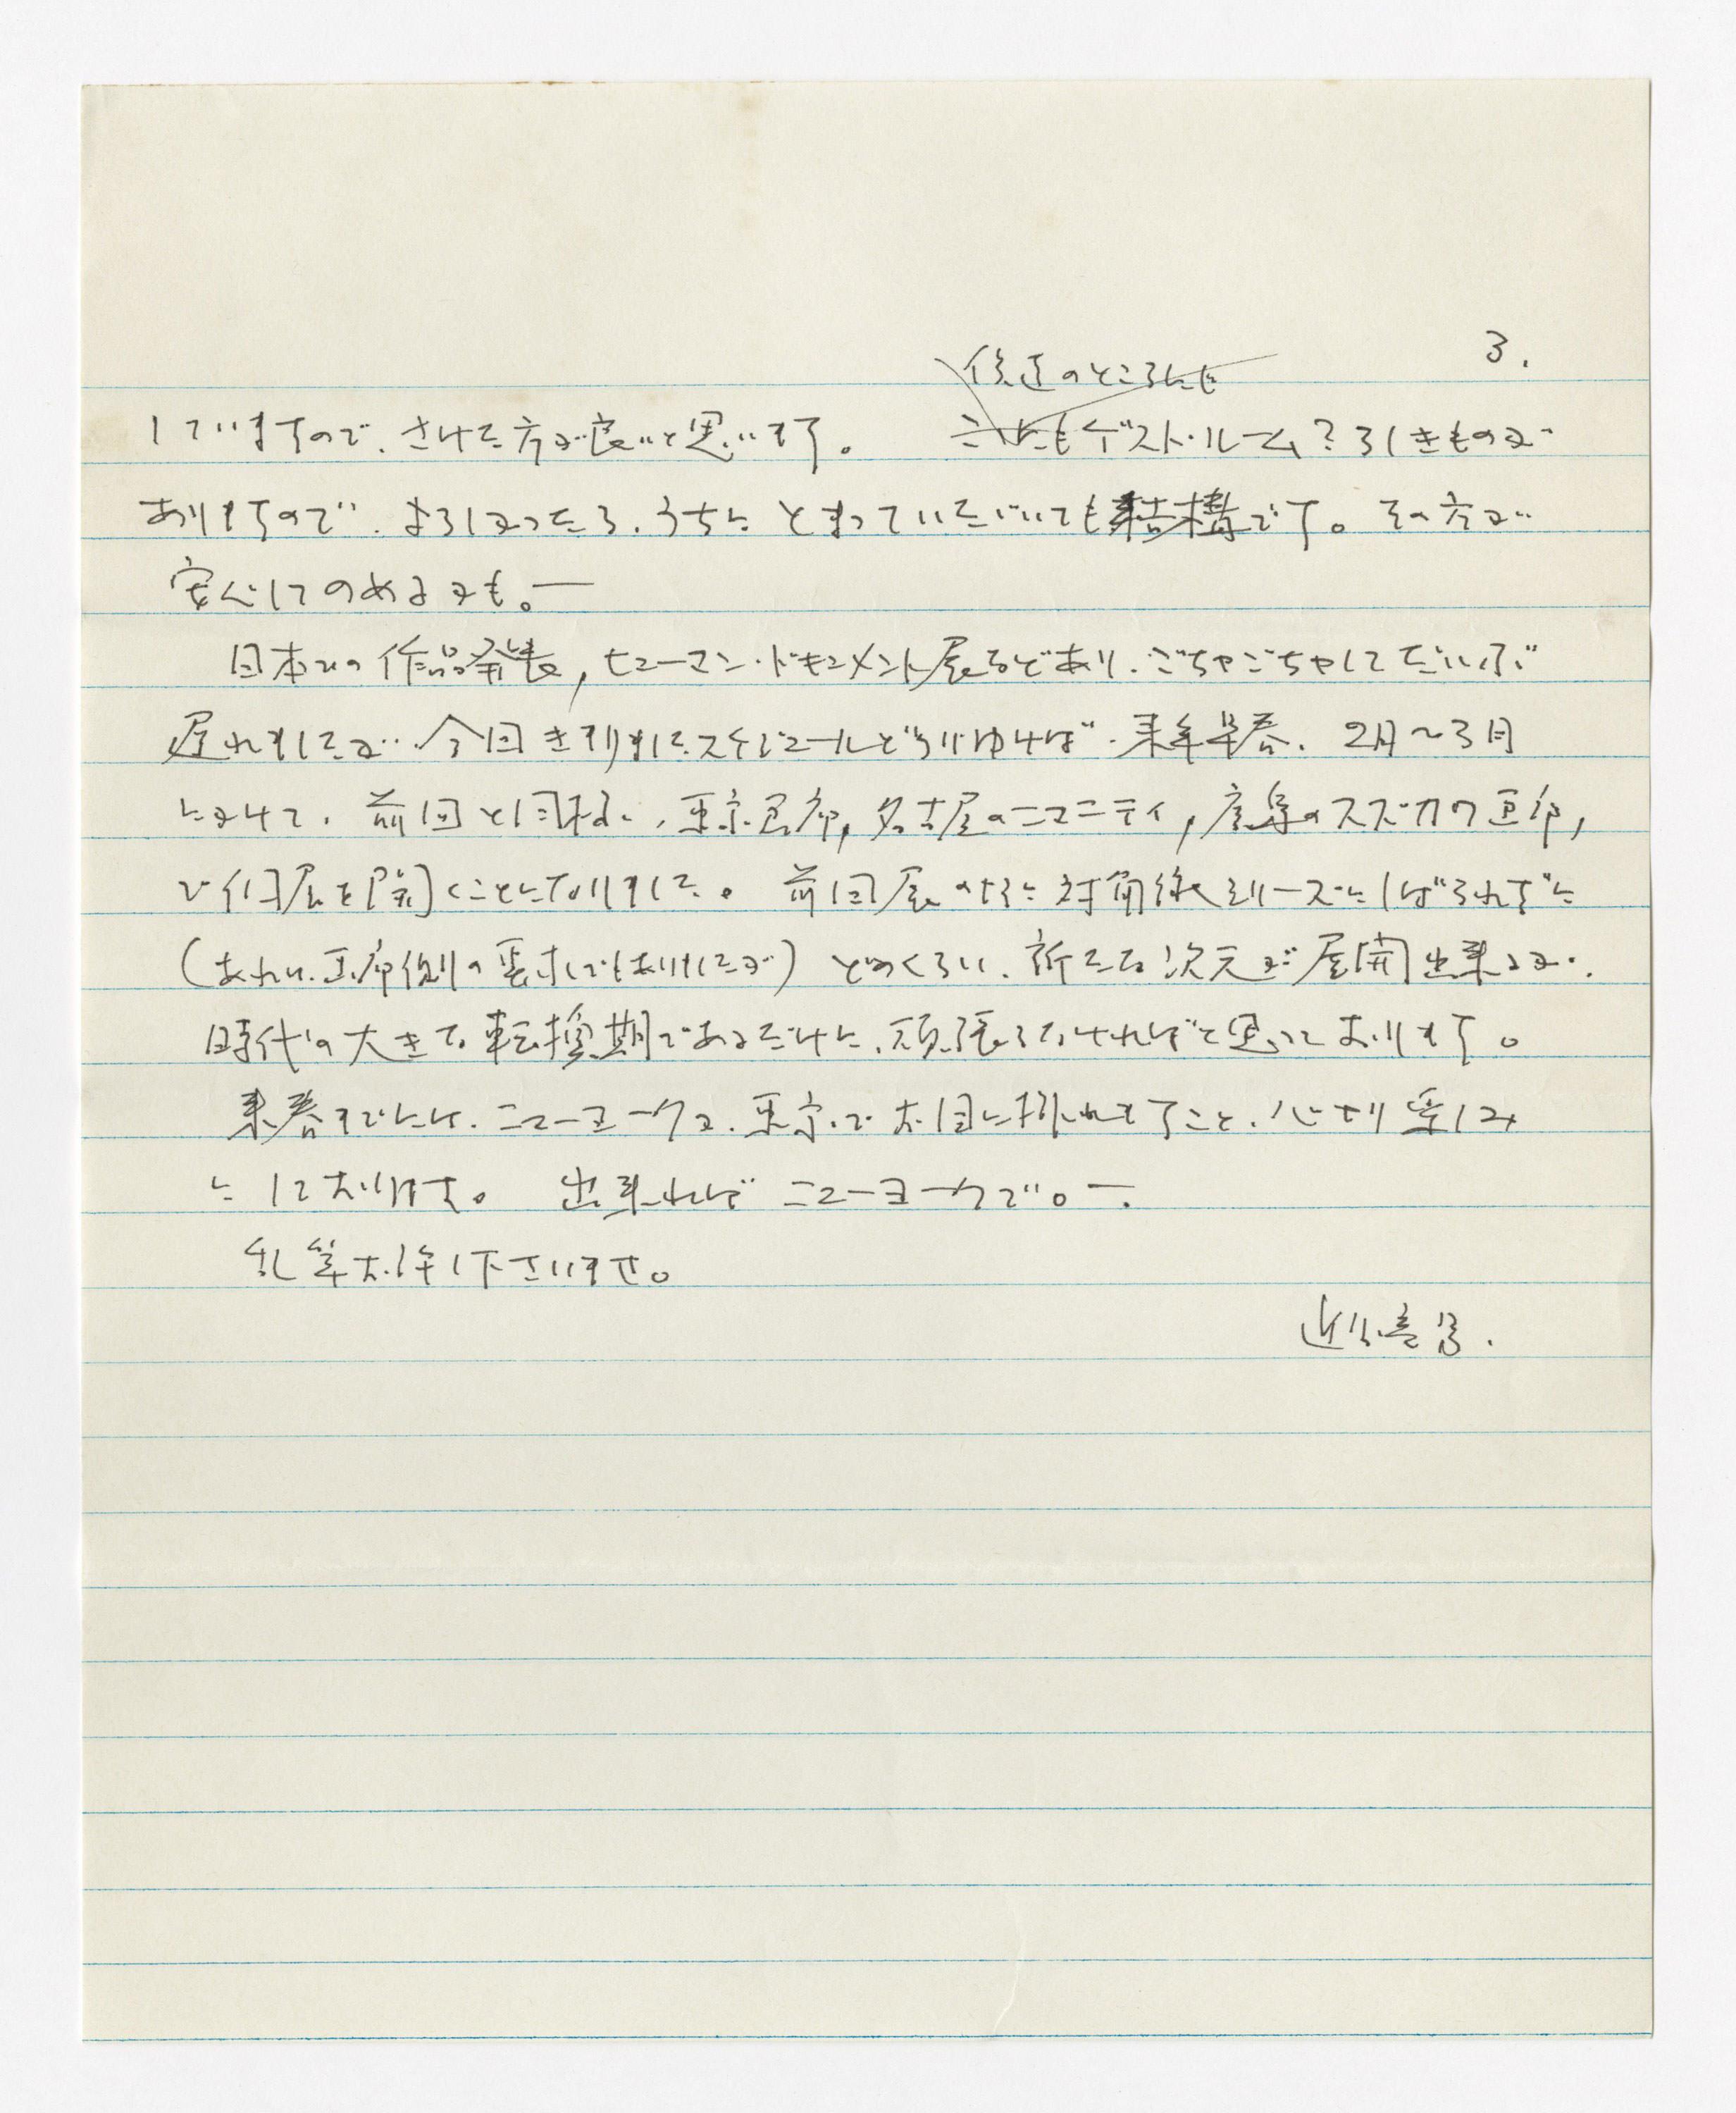 3.
していますので、さけた方が良いと思います。 こゝにもゲスト・ルーム?らしきものが
ありますので、よろしかったら、うちにとまっていたゞいても結構です。その方が
安心してのめるかも。—
日本での作品発表, ヒューマン・ドキュメント展などあり、ごちゃごちゃしてだいぶ
遅れましたが、今回きまりましたスケジュールどうりゆけば、来年早春、2月〜3月
にかけて、前回と同様に、東京画廊, 名古屋のユマニテ, 広島のスズカワ画廊,
で個展を開くことになりました。 前回展のように対角線シリーズにしばられずに
(あれは、画廊側の要求でもありましたが) どのくらい、新たな次元が展開出来るか、
時代の大きな転換期であるだけに、頑張らなければと思っております。
来春までには、ニューヨークか、東京でお目に掛れますこと、心より楽しみ
にしております。 出来ればニューヨークで。—.
乱筆お許し下さいませ。